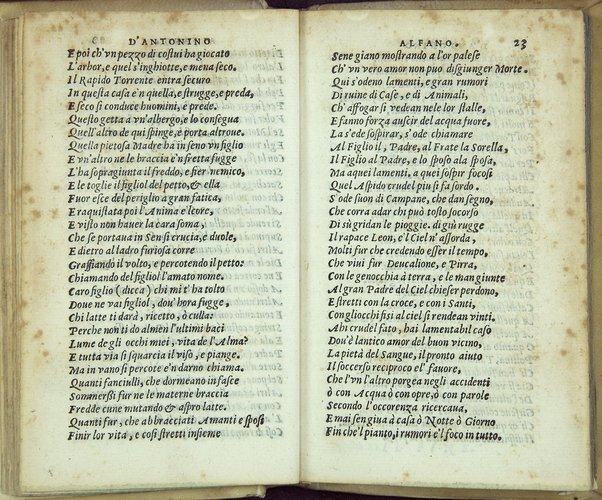 D'ANTONINO
E poi ch'vn pezzo di costui ha giocato
L'arbor, e quel s'inghiotte, e mena seco.
Il Rapido Torrente entra securo
In questa casa e'n quella, e strugge, e preda,
E seco si conduce huomini, e prede.
Questo getta a vn'albergo, e lo consegua
Quell'altro de qui spinge, e porta altroue.
Quella pietosa Madre ha in seno vn figlio
E vn'altro ne le braccia e'n fretta fugge
L'ha sopragiunta il freddo, e fier nemico,
E le toglie il figliol del petto, & ella
Fuor esce del periglio a gran fatica,
E raquistata poi l'Anima e'l core,
E visto non hauer la cara soma,
Che se portaua in Sen si crucia, e duole,
E dietro al ladro furiosa corre
Graffiando il volto, e percotendo il petto:
Chiamando del figliol l'amato nome.
Caro figlio (dicca) chi mi t'ha tolto
Doue ne vai figliol, dou'hora fugge,
Chi latte ti darà, ricetto, ò culla:
Perche non ti do almen l'ultimi baci
Lume degli occhi miei, vita de l'Alma?
E tutta via si squarcia il viso, e piange.
Ma in vano si percote e'n darno chiama.
Quanti fanciulli, che dormeano in fasce
Sommersi fur ne le materne braccia
Fredde cune mutando & aspro latte.
Quanti fur, che abbracciati Amanti e sposi
Finir lor vita, e così stretti insieme
ALFANO. 23
Sene giano mostrando a l'or palese
Ch'vn vero amor non puo disgiunger Morte.
Qui s'odeno lamenti, e gran rumori
Di ruine di Case, e di Animali,
Ch'affogar si vedean nele lor stalle,
E fanno forza auscir del acqua fuore,
La s'ede sospirar, s'ode chiamare
Al Figlio il, Padre, al Frate la Sorella,
Il Figlio al Padre, e lo sposo ala sposa,
Ma aquei lamenti, a quei sospir focosi
Quel Aspido crudel piu si fa sordo.
S'ode suon di Campane, che dan segno,
Che corra adar chi può tosto socorso
Di sù gridan le pioggie. di giù rugge
Il rapace Leon, e'l Ciel n'assorda,
Molti fur che credendo esser il tempo,
Che viui fur Deucalione, e Pirra,
Con le genocchia à terra, e le man giunte
Al gran Padre del Ciel chieser perdono,
E stretti con la croce, e con i Santi,
Con gliocchi fisi al ciel si rendean vinti.
Ahi crudel fato, hai lamentabil caso
Dou'è lantico amor del buon vicino,
La pietà del Sangue, il pronto aiuto
Il soccorso reciproco e'l fauore,
Che l'vn l'altro porgea negli accidenti
ò con Acqua ò con opre, ò con parole
Secondo l'occorenza ricercaua,
E mai sen giua à casa ò Notte ò Giorno
Fin che'l pianto, i rumori e'l foco in tutto.